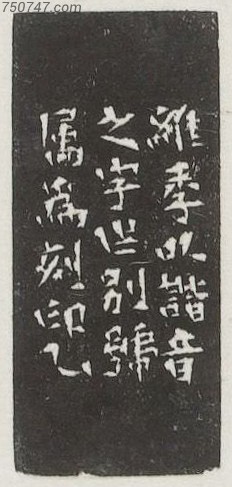 750747.com
維季以諧音
之字作别號
属為刻印乙